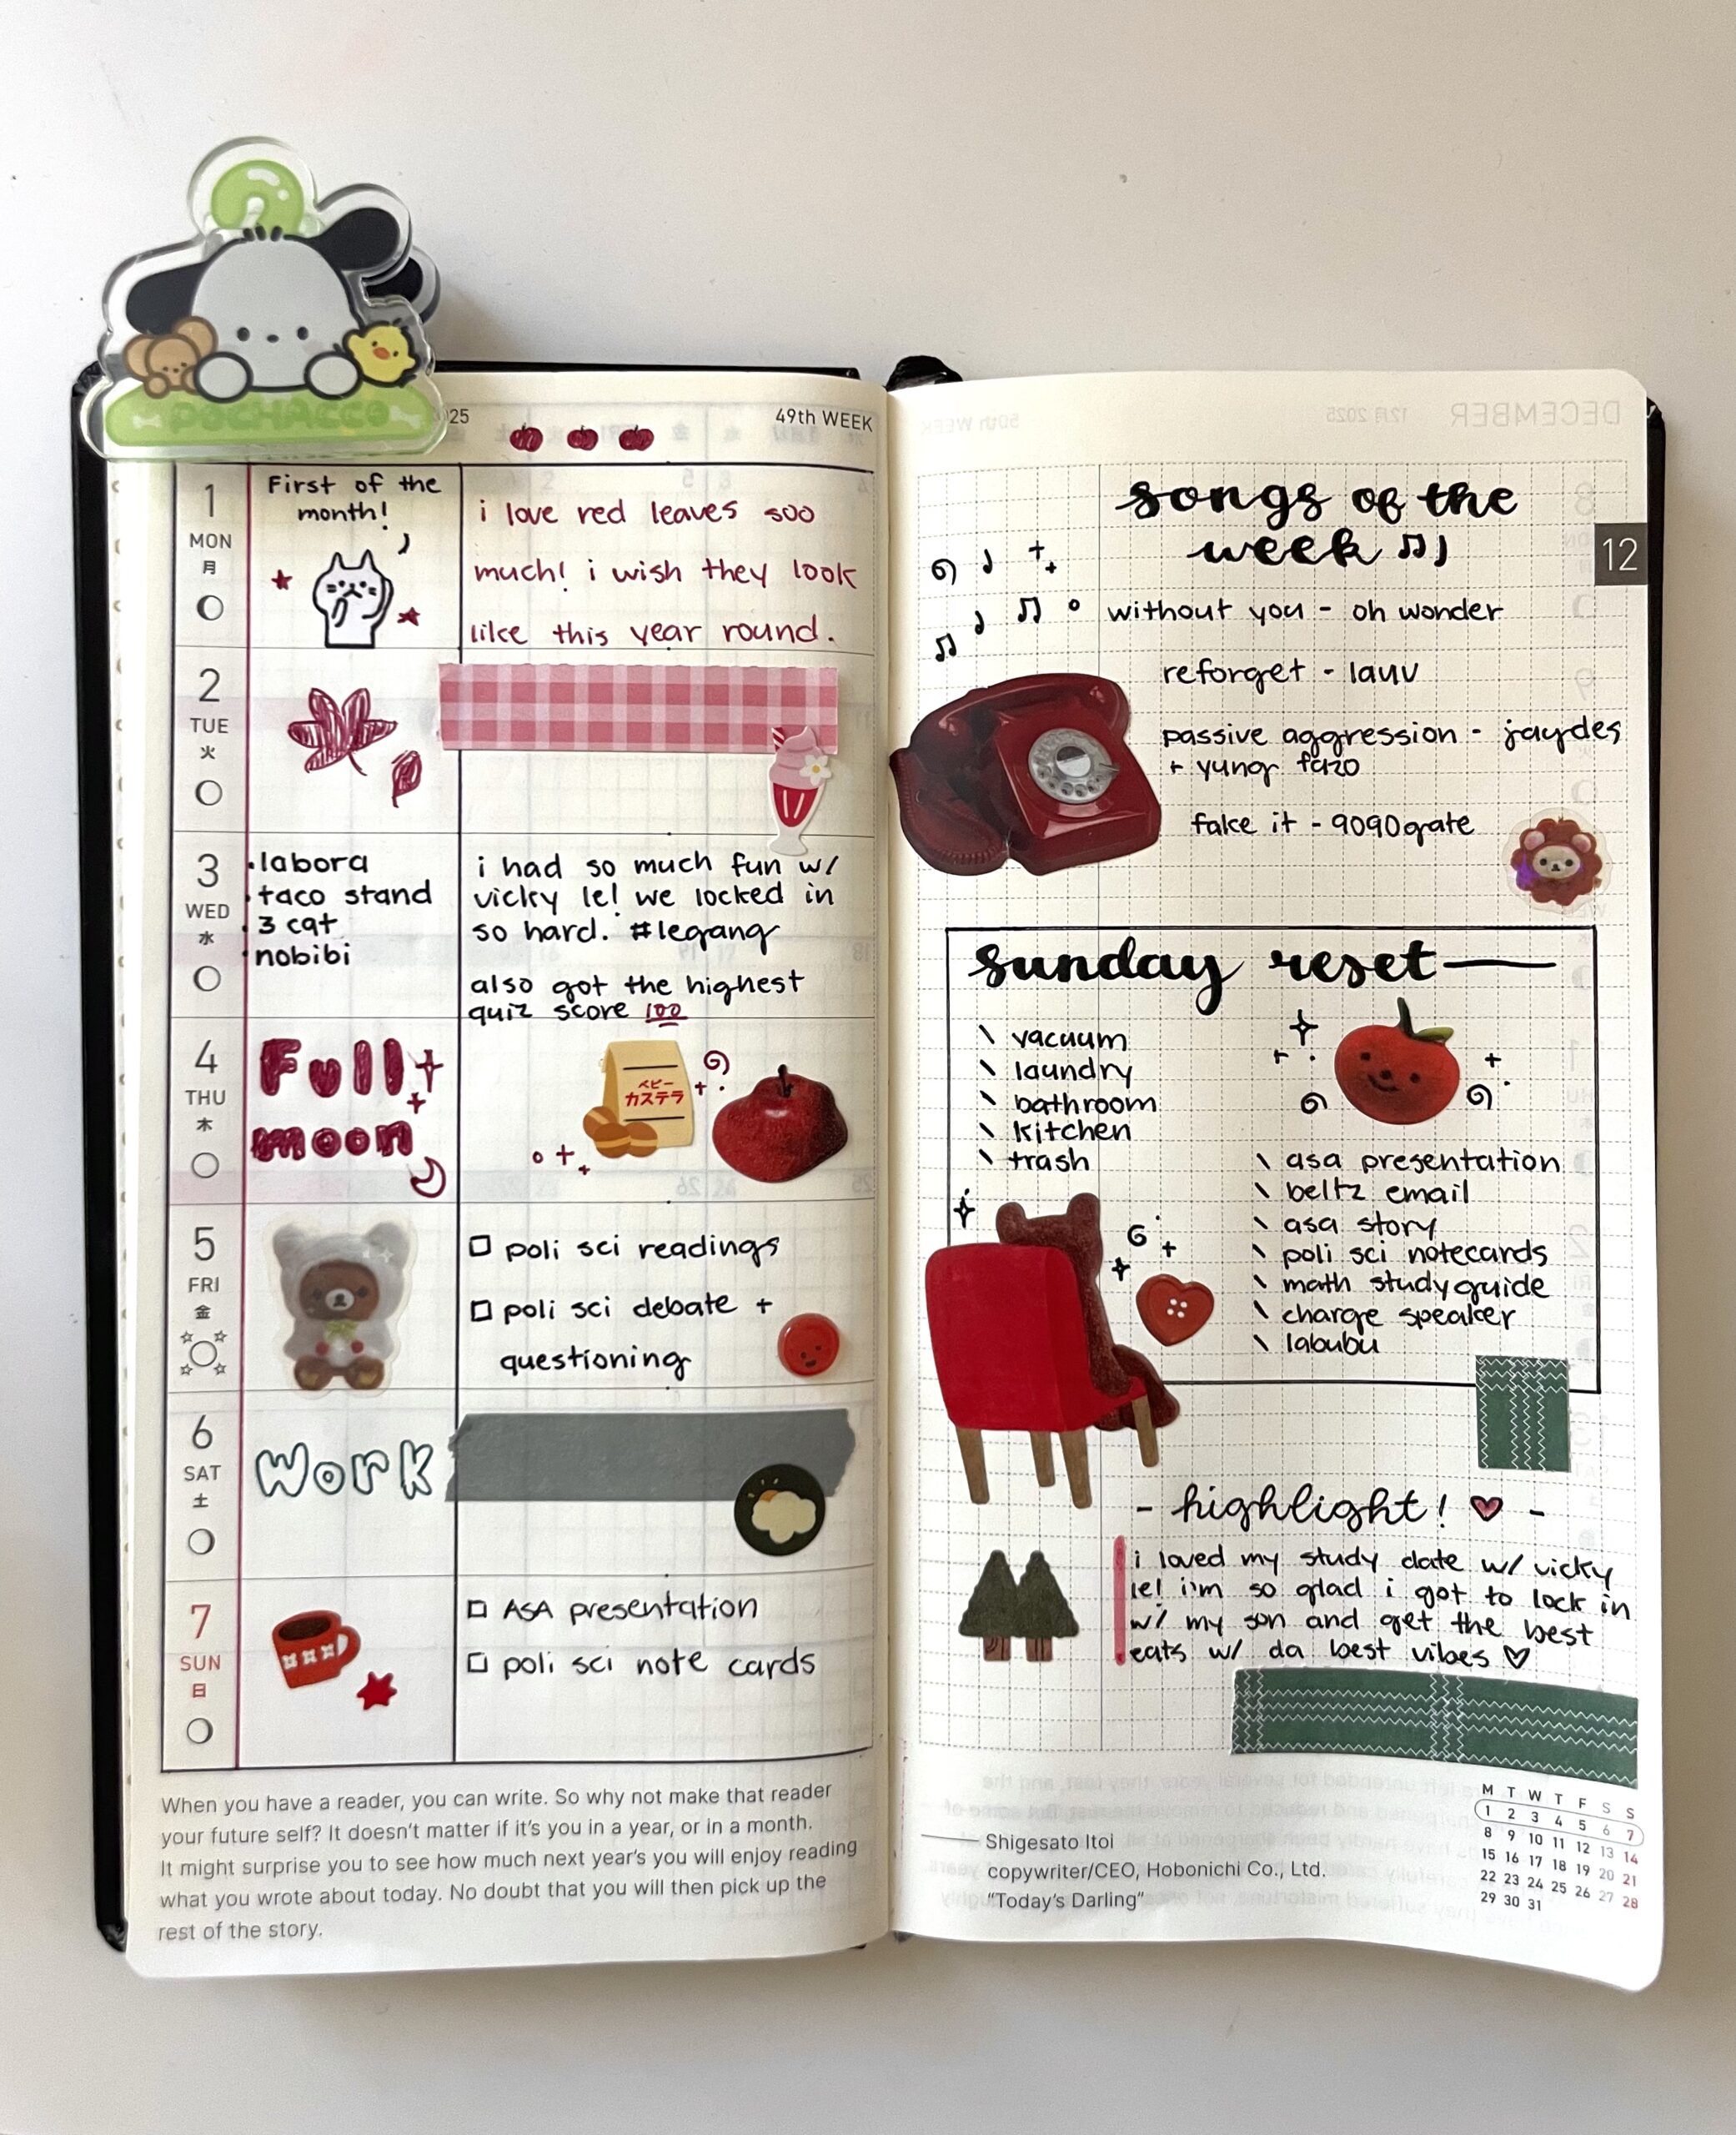 POCHACCO
025
49th WEEK
1
MON
月
First of the
month!
i love red leaves soo
much! i wish they look
like this year round.
2
TUE
火
3
WED
水
• labora
• taco stand
• 3 cat
• nobibi
i had so much fun w/
vicky le! we locked in
so hard. #legang
also got the highest
quiz score 100
4
THU
木
Full
moon
ベビー
カステラ
5
FRI
金
poli sci readings
poli sci debate +
questioning
6
SAT
土
Work
7
SUN
日
ASA presentation
poli sci note cards
When you have a reader, you can write. So why not make that reader
your future self? It doesn't matter if it's you in a year, or in a month.
It might surprise you to see how much next year's you will enjoy reading
what you wrote about today. No doubt that you will then pick up the
rest of the story.
DECEMBER
12月 2025
50th WEEK
12
songs of the
week
without you - oh wonder
reforget - lauv
passive aggression - jaydes
+ yung fazo
fake it - 9090gate
sunday reset
\ vacuum
\ laundry
\ bathroom
\ kitchen
\ trash
\ asa presentation
\ beltz email
\ asa story
\ poli sci notecards
\ math studyguide
\ charge speaker
\ labubu
- highlight! ♥ -
i loved my study date w/ vicky
le! i'm so glad i got to lock in
w/ my son and get the best
eats w/ da best vibes ♡
Shigesato Itoi
copywriter/CEO, Hobonichi Co., Ltd.
"Today's Darling"
M T W T F S S
1 2 3 4 5 6 7
8 9 10 11 12 13 14
15 16 17 18 19 20 21
22 23 24 25 26 27 28
29 30 31